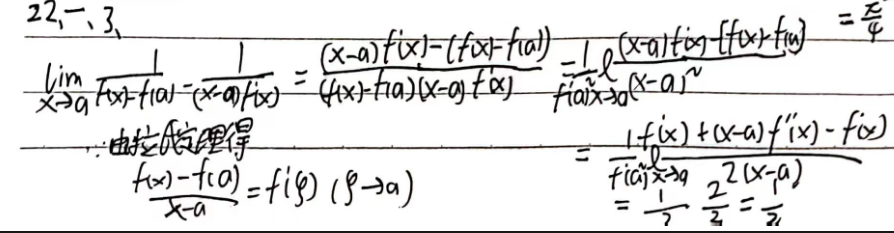 22,一、3、
= π/4
lim x→a 1/(f(x)-f(a)) - 1/((x-a)f'(x)) = ((x-a)f'(x)-(f(x)-f(a)))/((f(x)-f(a))(x-a)f'(x)) = 1/f'(a)² l x→a ((x-a)f'(x)-[f(x)-f(a)])/(x-a)²
∵由拉氏定理得
(f(x)-f(a))/(x-a) = f'(ρ) (ρ→a)
= 1/f'(a)² l x→a (f'(x)+(x-a)f''(x)-f'(x))/(2(x-a))
= 1/2 · 2/2 = 1/2